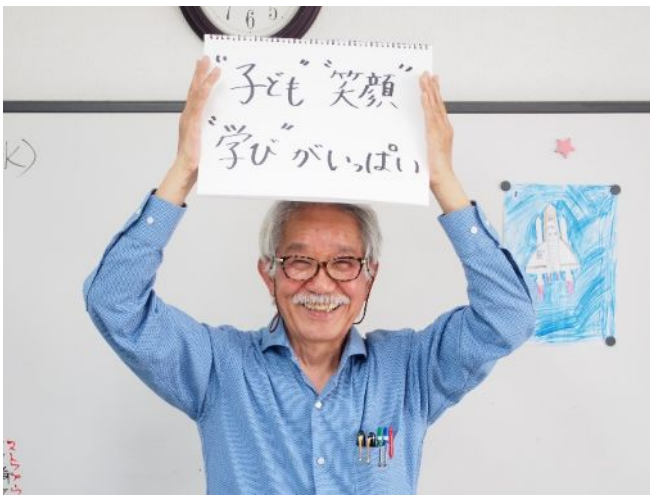 7 6 5
“子ども”“笑顔”
“学び”がいっぱい
K)